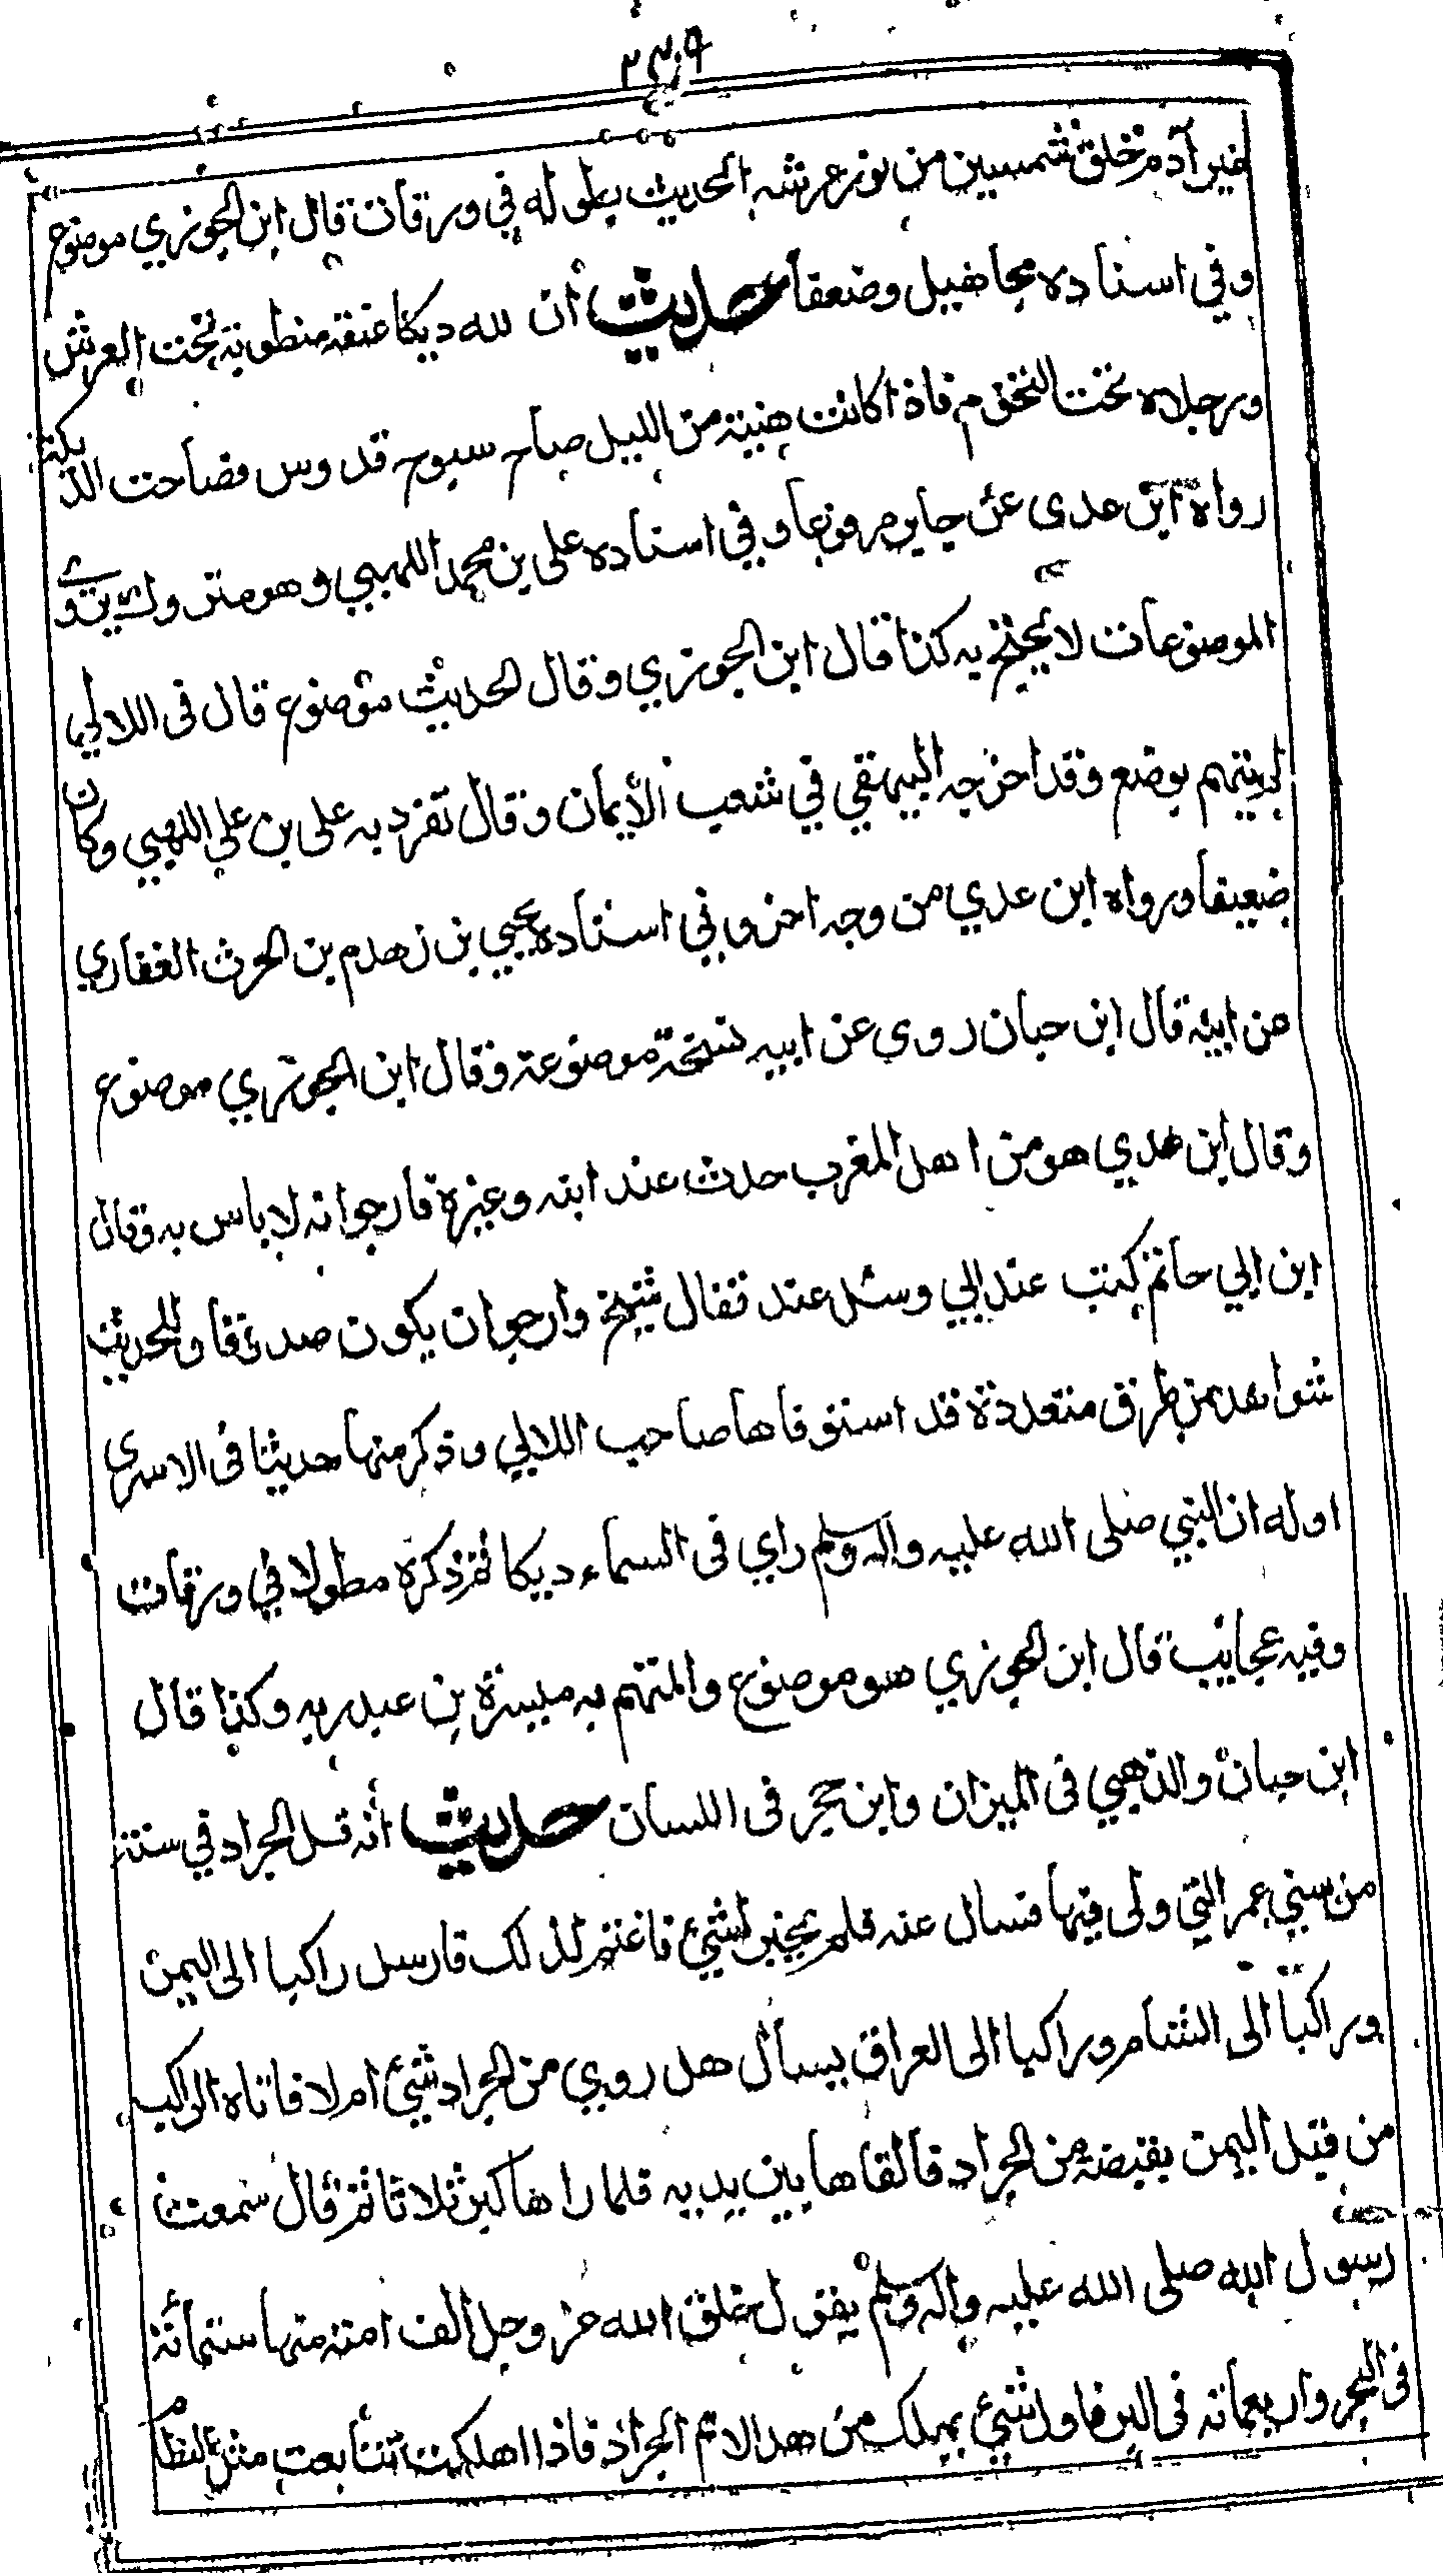 ٢٣٩
غير آدم خلق شمسين من نور عرشه الحديث بطوله في ورقات قال ابن الجوزي موضوع
وفي اسناده مجاهيل وضعفا حديث أن لله ديكا عنقه منطوية تحت العرش
ورجلاه تحت التخوم فاذا كانت هنية من الليل صاح سبوح قدوس فصاحت الديكة
رواه ابن عدى عن جابر مرفوعا وفي اسناده على بن محمد اللهبي وهو متروك يروي
الموضوعات لا يحتج به كذا قال ابن الجوزي وقال الحديث موضوع قال فى اللالي
لم يتهم بوضع وقد اخرجه البيهقي في شعب الأيمان وقال تفرد به على بن علي اللهبي وكان
ضعيفا ورواه ابن عدي من وجه اخر وفي اسناده يحيي بن زهدم بن الحرث الغفاري
من ابيه قال ابن حبان روي عن ابيه نسخة موضوعة وقال ابن الجوزي موضوع
وقال ابن عدي هو من اهل المغرب حدث عند ابنه وغيره فارجوا نه لا باس به وقال
ابن ابي حاتم كتب عند ابي وسئل عند فقال شيخ وارجوان يكون صدوقا وللحديث
شواهد من طرق متعددة قد استوفاها صاحب اللالي وذكر منها حديثا فى الاسرى
اوله ان النبي صلى الله عليه واله وسلم راي فى السماء ديكا ثم ذكره مطولا في ورقات
وفيه عجايب قال ابن الجوزي هو موضوع والمتهم به ميسرة بن عبد ربه وكذا قال
ابن حبان والذهبي فى الميزان وابن حجر فى اللسان حديث أنه قل الجراد في سنة
من سني عمر التي ولى فيها فسال عنه فلم يخبر بشيئ فاغتم لذلك فارسل راكبا الى اليمن
وراكباً الى الشام وراكبا الى العراق يسأل هل روي من الجراد شيئ ام لا فاتاه الراكب
من قبل اليمن بقبضة من الجراد فالقاها بين يديه فلما راها كبر ثلاثا ثم قال سمعت
رسول الله صلى الله عليه واله وسلم يقول خلق الله عز وجل الف امة منها ستمائة
فى البحر واربعماته فى البر فاول شيئ يهلك من هذ الامم الجراد فاذا اهلكت تتأبعت مثل النظام